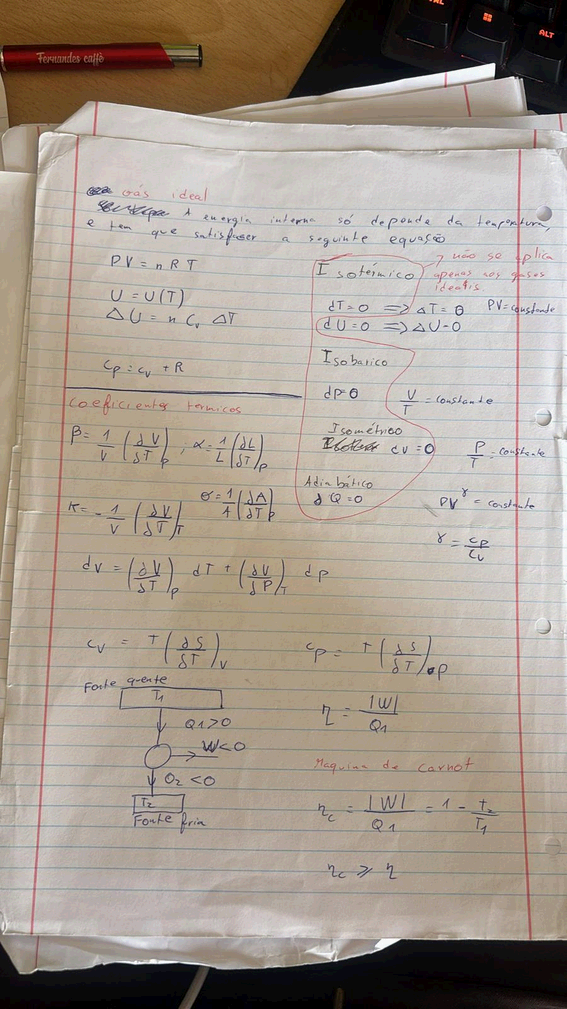 Fernandes caffè
ALT
Gás ideal
A energia interna só depende da temperatura,
e tem que satisfazer a seguinte equação
PV = nRT
U = U(T)
ΔU = n Cv ΔT
Cp = Cv + R
Isotérmico
não se aplica
apenas nos gases
ideais
dT=0 => ΔT = 0
PV=constante
dU=0 => ΔU=0
Isobarico
dP=0
V/T = constante
Isométrico
dV=0
P/T = constante
Adiabático
δQ=0
PV^γ = constante
γ = Cp/Cv
Coeficientes termicos
β = 1/V (∂V/∂T)_P , α = 1/L (∂L/∂T)_P
σ = 1/A (∂A/∂T)_P
K = - 1/V (∂V/∂T)_T
dV = (∂V/∂T)_P dT + (∂V/∂P)_T dp
Cv = T (∂S/∂T)_V
Cp = T (∂S/∂T)_P
Fonte quente
T1
Q1>0
W<0
Q2<0
T2
Fonte fria
η = |W|/Q1
Maquina de Carnot
ηc = |W|/Q1 = 1 - T2/T1
ηc ⩾ η